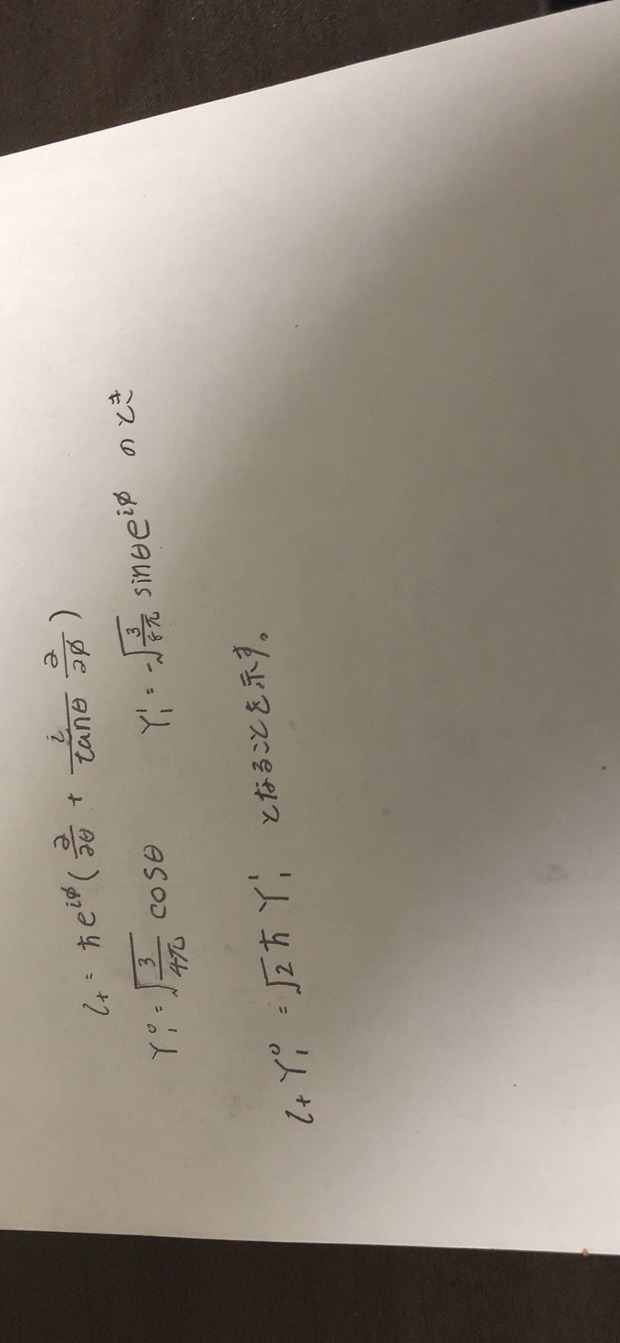 l₊ = ħe^{iφ}(∂/∂θ + i/tanθ ∂/∂φ)
Y₁⁰ = √(3/4π) cosθ Y₁¹ = -√(3/8π) sinθe^{iφ} のとき
l₊Y₁⁰ = √2 ħ Y₁¹ となることを示す。